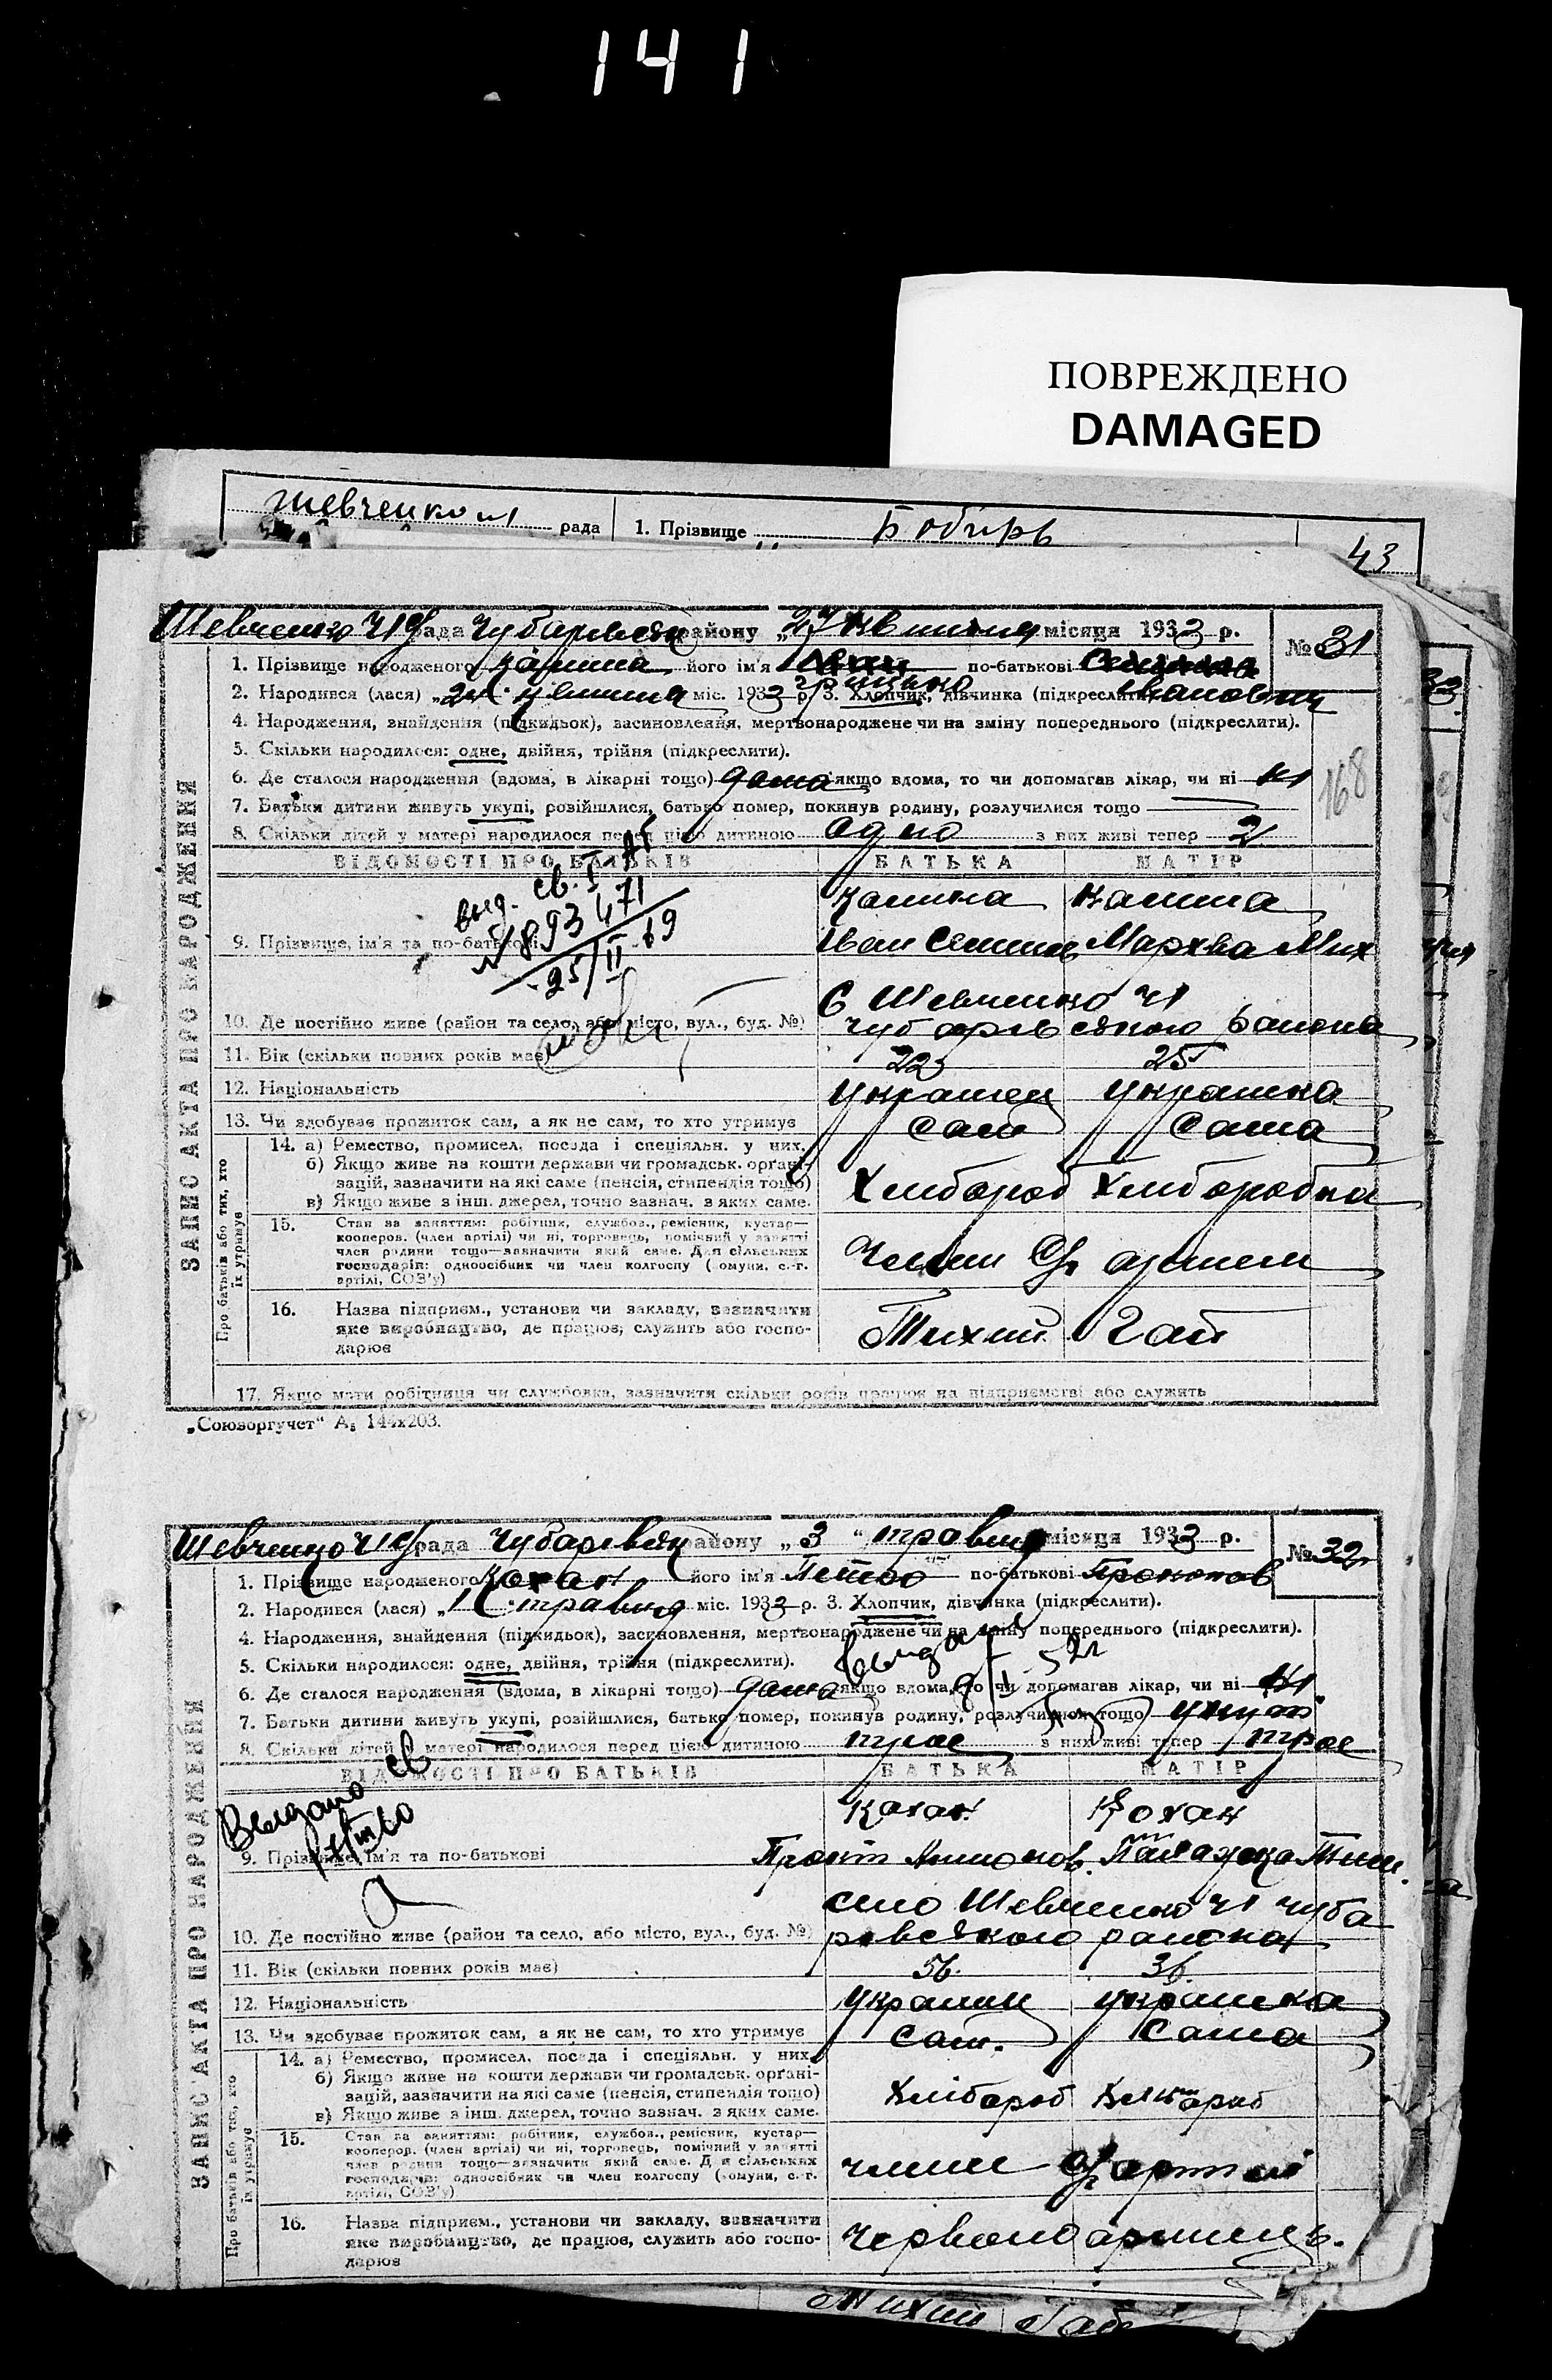 141
ПОВРЕЖДЕНО
DAMAGED
рада 1. Прізвище Бобирь
43
Шевченко ч1 с/рада Чубарівськ району „27 квітня місяця 1933 р. № 31
1. Прізвище народженого його ім'я по-батькові
Іванович
2. Народився (лася) „ міс. 1933 р. 3. Хлопчик, дівчинка (підкреслити)
4. Народження, знайдення (підкидьок), засиновлення, мертвонароджене чи на зміну попереднього (підкреслити).
5. Скільки народилося: одне, двійня, трійня (підкреслити).
6. Де сталося народження (вдома, в лікарні тощо) дома якщо вдома, то чи допомагав лікар, чи ні
7. Батьки дитини живуть укупі, розійшлися, батько помер, покинув родину, розлучилися тощо
168
8. Скільки дітей у матері народилося перед цією дитиною одно з них живі тепер 2
ВІДОМОСТІ ПРО БАТЬКІВ БАТЬКА МАТІР
выд. св. I АГ
№ 893471
25/II-69
9. Прізвище, ім'я та по-батькові Іван Мархва Мих
С Шевченко ч1
10. Де постійно живе (район та село, або місто, вул., буд. №) Чубарівського району
11. Вік (скільки повних років має) 22 25
12. Національність
13. Чи здобуває прожиток сам, а як не сам, то хто утримує сам сама
14. а) Ремество, промисел, посада і спеціяльн. у них.
б) Якщо живе на кошти держави чи громадськ. орґані-
зацій, зазначити на які саме (пенсія, стипендія тощо)
в) Якщо живе з інш. джерел, точно зазнач. з яких саме.
Хлібороб Хлібороб
15. Стан за заняттям: робітник, службов., ремісник, кустар—
кооперов. (член артілі) чи ні, торговець, помічний у занятті
член родини тощо—зазначити який саме. Для сільських
господарів: одноосібник чи член колгоспу (комуни, с.-г.
артілі, СОЗ'у)
Член с/г артілі
16. Назва підприєм., установи чи закладу, зазначити
яке виробництво, де працює, служить або госпо-
дарює
Тихий Гай
17. Якщо мати робітниця чи службовка, зазначити скільки років працює на підприємстві або служить
ЗАПИС АКТА ПРО НАРОДЖЕННЯ
Про батьків або тих, хто
їх утримує
„Союзоргучет“ А₅ 144х203.
Шевченко ч1 с/рада Чубарівськ району „3“ травня місяця 1933 р. № 32
1. Прізвище народженого Кохан його ім'я Петро по-батькові
2. Народився (лася) „1“ травня міс. 1933 р. 3. Хлопчик, дівчинка (підкреслити).
4. Народження, знайдення (підкидьок), засиновлення, мертвонароджене чи на зміну попереднього (підкреслити).
5. Скільки народилося: одне, двійня, трійня (підкреслити).
6. Де сталося народження (вдома, в лікарні тощо) дома якщо вдома, то чи допомагав лікар, чи ні
7. Батьки дитини живуть укупі, розійшлися, батько помер, покинув родину, розлучилися тощо укупі
8. Скільки дітей у матері народилося перед цією дитиною троє з них живі тепер троє
ВІДОМОСТІ ПРО БАТЬКІВ БАТЬКА МАТІР
Выдано св
17/III 60
Кохан Кохан
9. Прізвище, ім'я та по-батькові
село Шевченко ч1 Чуба
10. Де постійно живе (район та село, або місто, вул., буд. №) рівського району
11. Вік (скільки повних років має) 56 36
12. Національність
13. Чи здобуває прожиток сам, а як не сам, то хто утримує сам. сама
14. а) Ремество, промисел, посада і спеціяльн. у них.
б) Якщо живе на кошти держави чи громадськ. орґані-
зацій, зазначити на які саме (пенсія, стипендія тощо)
в) Якщо живе з інш. джерел, точно зазнач. з яких саме.
Хлібороб Хлібороб
15. Стан за заняттям: робітник, службов., ремісник, кустар—
кооперов. (член артілі) чи ні, торговець, помічний у занятті
член родини тощо—зазначити який саме. Для сільських
господарів: одноосібник чи член колгоспу (комуни, с.-г.
артілі, СОЗ'у)
член с/г артілі
16. Назва підприєм., установи чи закладу, зазначити
яке виробництво, де працює, служить або госпо-
дарює
Червоноармієць.
ЗАПИС АКТА ПРО НАРОДЖЕННЯ
Про батьків або тих, хто
їх утримує
Тихий Гай